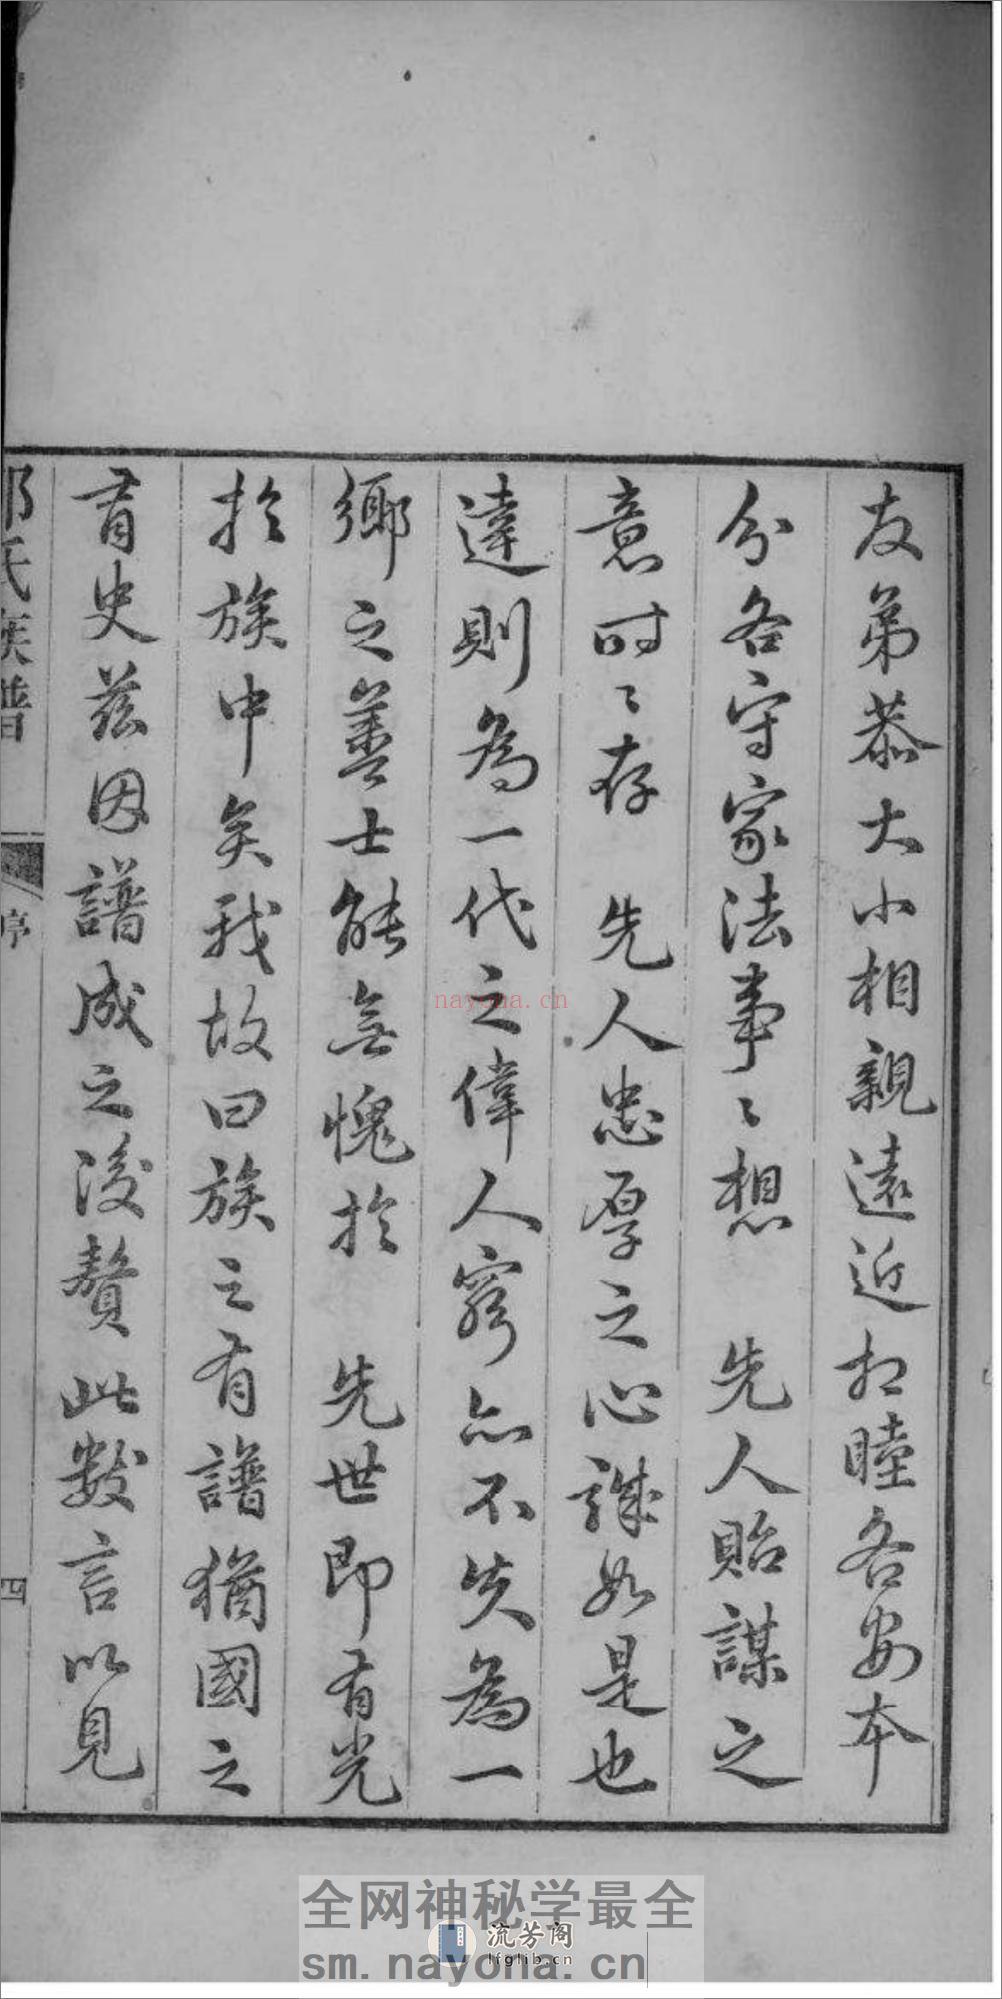 友弟恭大小相親遠近相睦各安本
分各守家法事〻想 先人貽謀之
意時〻存 先人忠厚之心誠如是也
達則為一代之偉人窮亦不失為一
鄉之善士能無愧於 先世即有光
於族中矣我故曰族之有譜猶國之
有史茲因譜成之後贅此數言以見
氏族譜
序
四
nayona.cn
全网神秘学最全
流芳阁
lfglib.cn
sm.nayona.cn